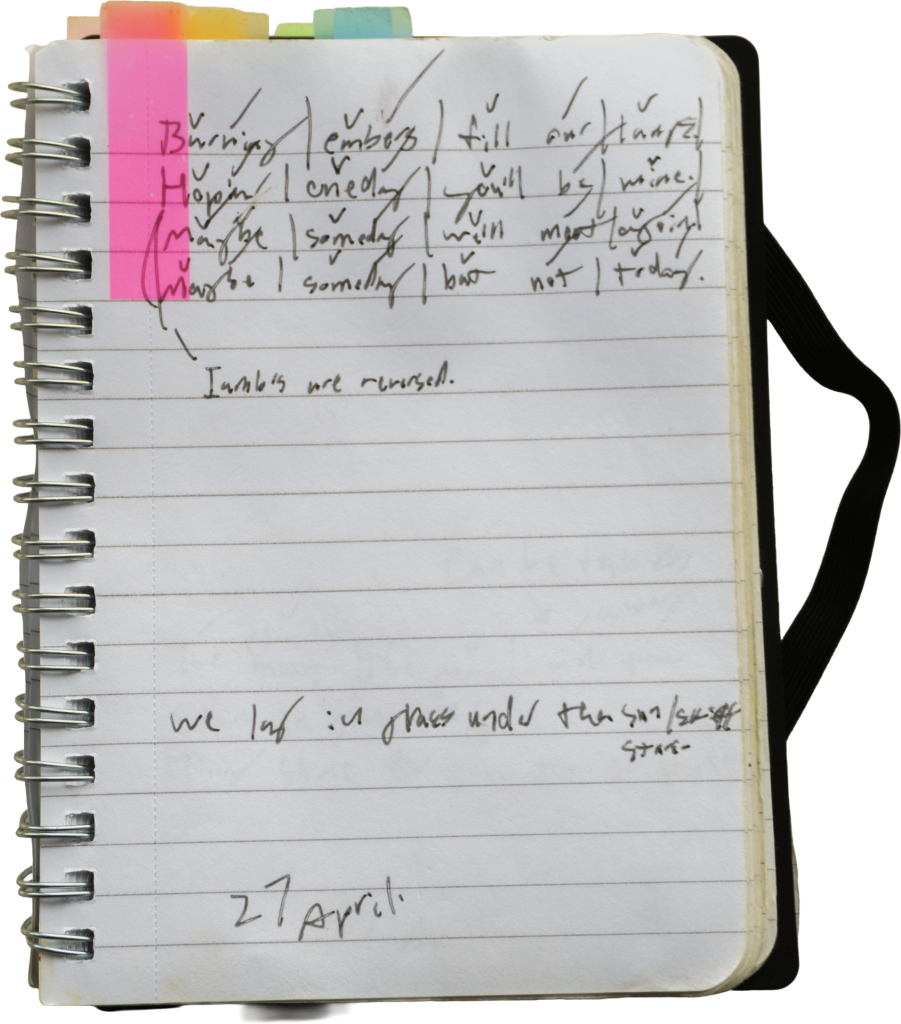 Burning | embers | fill our | lungs.
Hopin | oneday | you'll be | mine.
Maybe | someday | will meet | again.
Maybe | someday | but not | today.
Iambs are reversed.
we lay in grass under the sun/
stars
27 April.